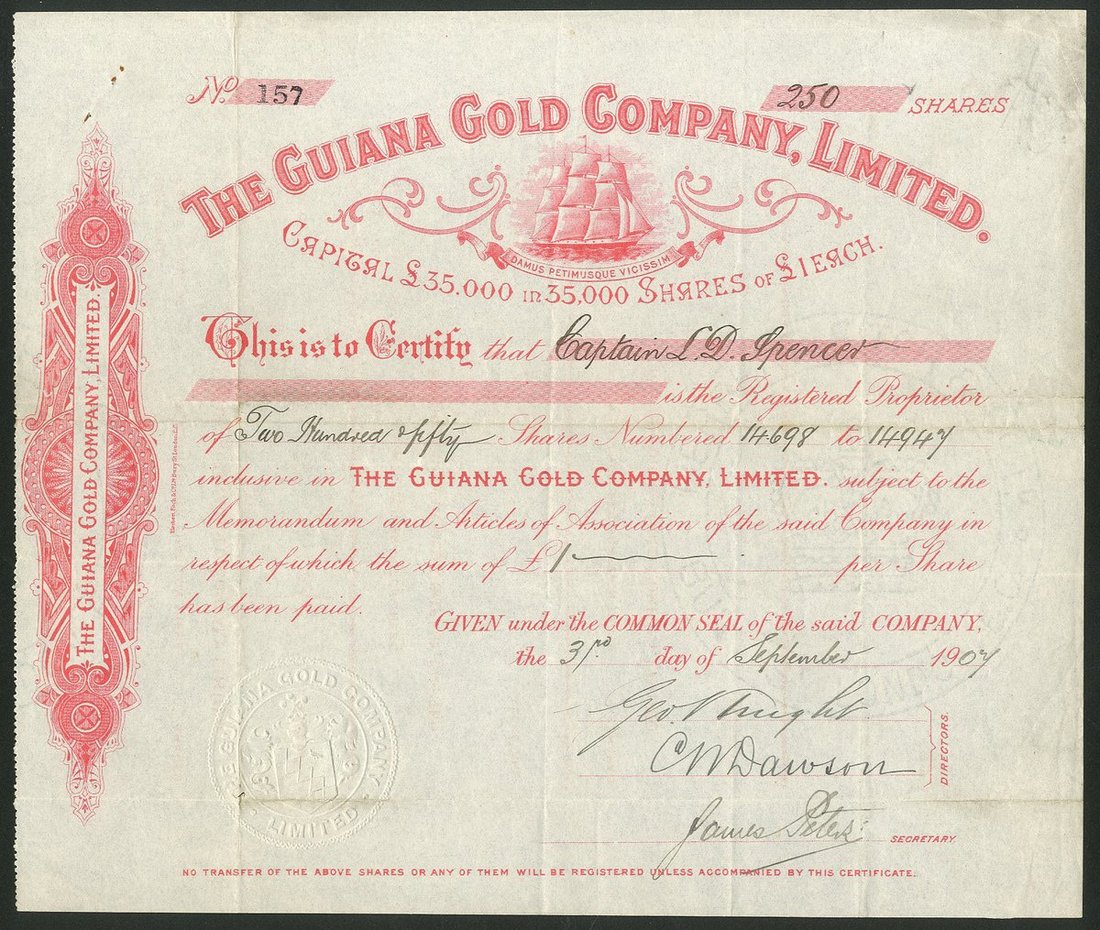 No 157
250 SHARES
THE GUIANA GOLD COMPANY, LIMITED.
DAMUS PETIMUSQUE VICISSIM
CAPITAL £35.000 IN 35,000 SHARES OF £1 EACH.
This is to Certify that Captain L. D. Spencer
is the Registered Proprietor
of Two Hundred & fifty Shares Numbered 14698 to 14947
inclusive in THE GUIANA GOLD COMPANY, LIMITED. subject to the
Memorandum and Articles of Association of the said Company in
respect of which the sum of £1 per Share
has been paid.
GIVEN under the COMMON SEAL of the said COMPANY,
the 3rd day of September 1907
Geo. Knight
C W Dawson
DIRECTORS.
James Peters
SECRETARY
NO TRANSFER OF THE ABOVE SHARES OR ANY OF THEM WILL BE REGISTERED UNLESS ACCOMPANIED BY THIS CERTIFICATE.
THE GUIANA GOLD COMPANY, LIMITED.
THE GUIANA GOLD COMPANY
LIMITED